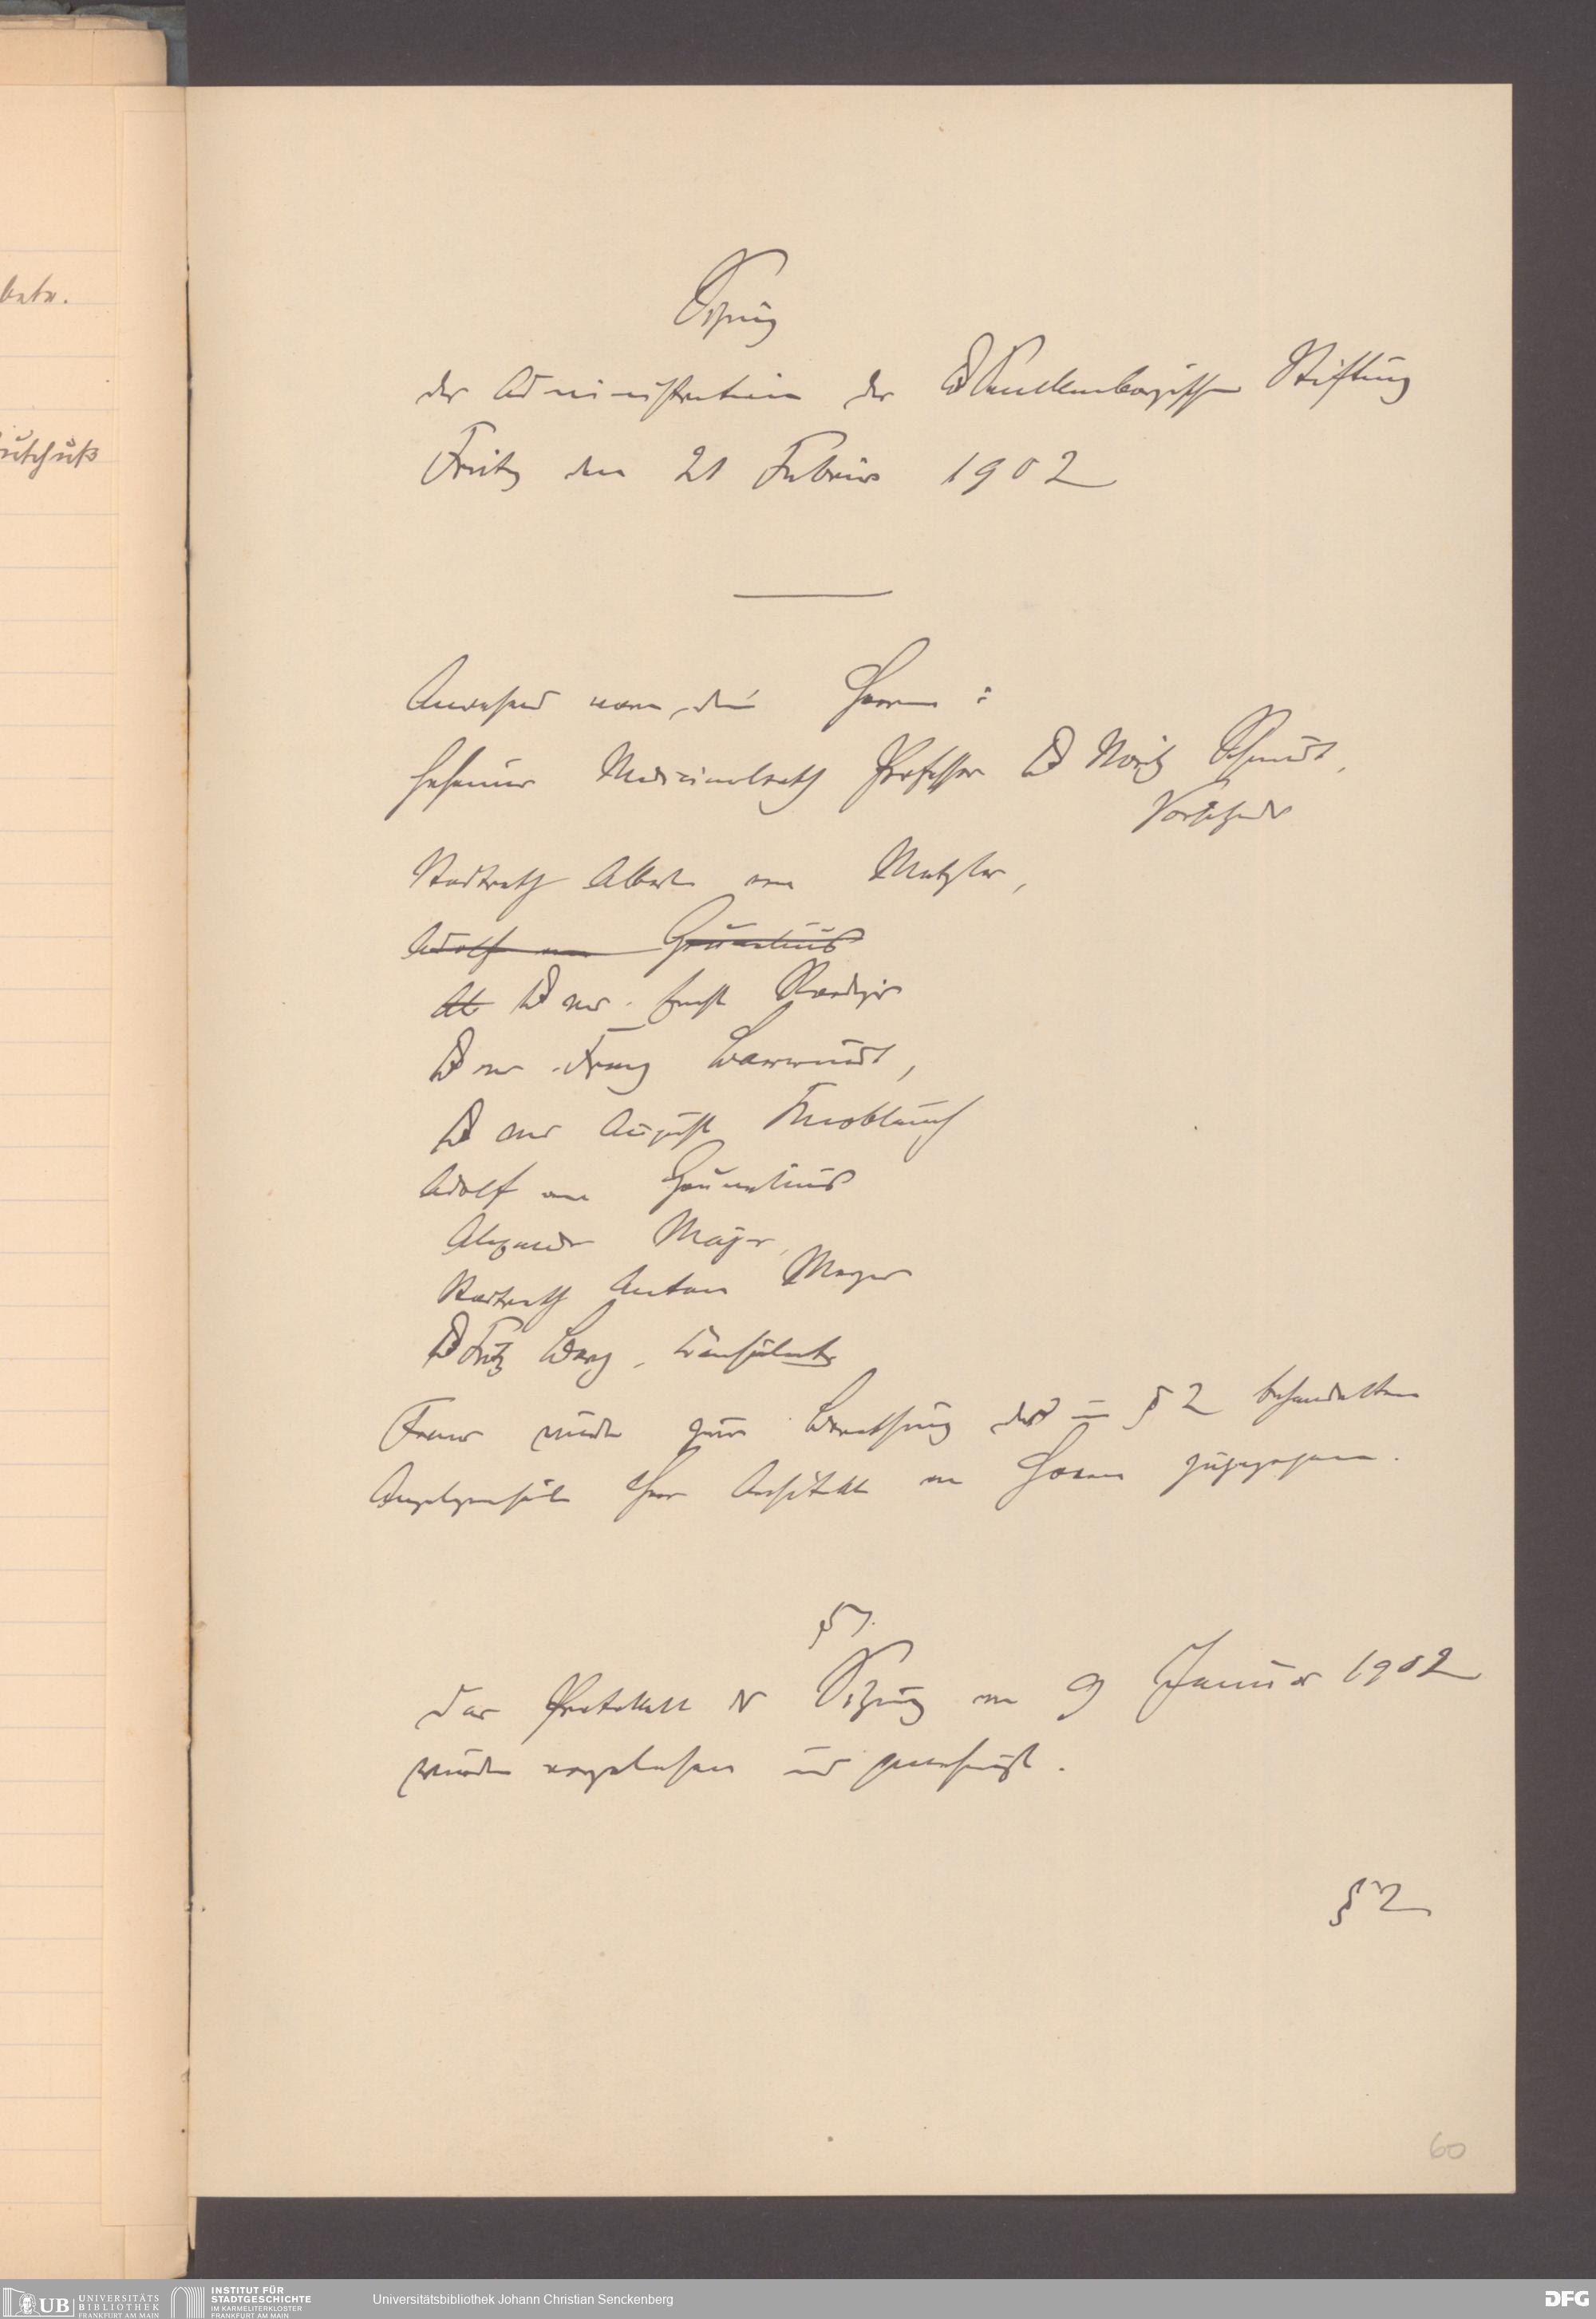 Sitzung
der Administration der Dr Senckenbergischen Stiftung
Freitag den 21 Februar 1902
Anwesend waren die Herren :
Geheimer Medicinalrath Professor Dr Moritz Schmidt,
Vorsitzender
Stadtrath Albert von Metzler,
Adolf von Grunelius
Al Dr med. Ernst Roediger
Dr med. Franz Berwindt,
Dr med August Knoblauch
Adolf von Grunelius
Alexander Majer,
Stadtrath Anton Meyer
Dr Fritz Berg, Consulent
Ferner wurde zur Berathung der in § 2 behandelten
Angelegenheit Herr Architekt von Hoven zugezogen.
§ 1.
Das Protokoll der Sitzung vom 9 Januar 1902
wurde vorgelesen und genehmigt.
§ 2
60
batn.
utschuß
UB UNIVERSITÄTS
BIBLIOTHEK
FRANKFURT AM MAIN
INSTITUT FÜR
STADTGESCHICHTE
IM KARMELITERKLOSTER
FRANKFURT AM MAIN
Universitätsbibliothek Johann Christian Senckenberg
DFG